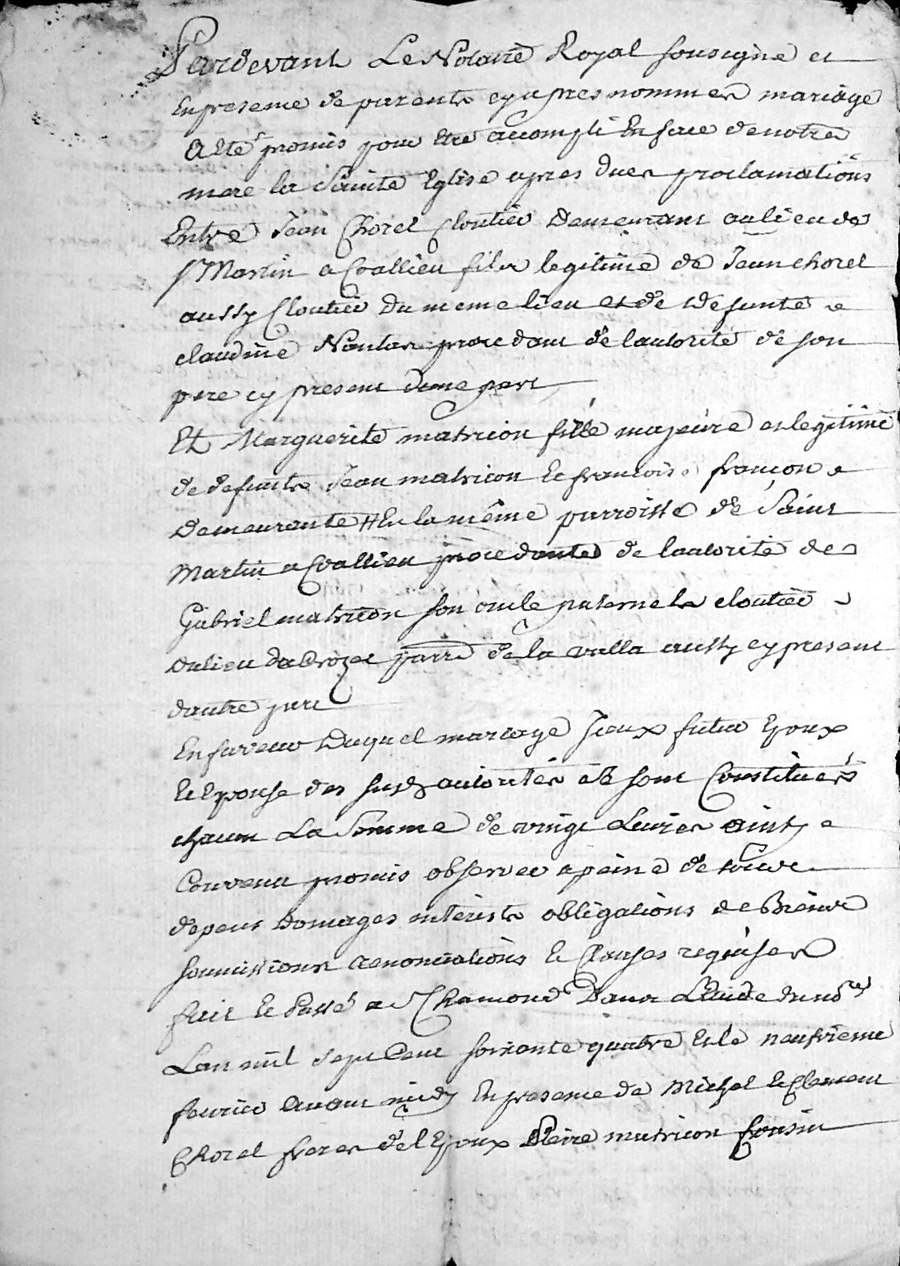 Pardevant Le Notaire Royal sousigné et
En presence de parents cy apres nommes mariage
A eté promis pour etre accompli En face de notre
mere la Sainte Eglise apres dues proclamations
Entre Jean Chorel Cloutier Demeurant au lieu de
St Martin a Coallieu fils legitime de Jean chorel
aussy Cloutier du meme lieu et de defunte
claudine Nantas procedant de lautorité de son
pere cy present dune part
Et Marguerite matricon fille majeure et legitime
de defunts Jean matricon et francoise françon
Demeurante En la même parroisse de Saint
Martin a Coallieu procedante de lautorité de
Gabriel matricon son oncle paternel cloutier
du lieu de parre de la valla aussy cy present
dautre part
En faveur Duquel mariage iceux futur Epoux
et Epouse des susd autorités se sont Constitués
chacun La Somme de vingt Livres ainsy
Convenu promis observer a peine de tous
depens Domages interets obligations de Biens
soumissions renonciations et Clauses requises
fait et Passé a St Chamond Dans LEtude du nore
Lan mil sept cent soixante quatre et le neufvieme
fevrier avant midy En presence de Michel et Clement
Chorel freres de lEpoux Pierre matricon Cousin